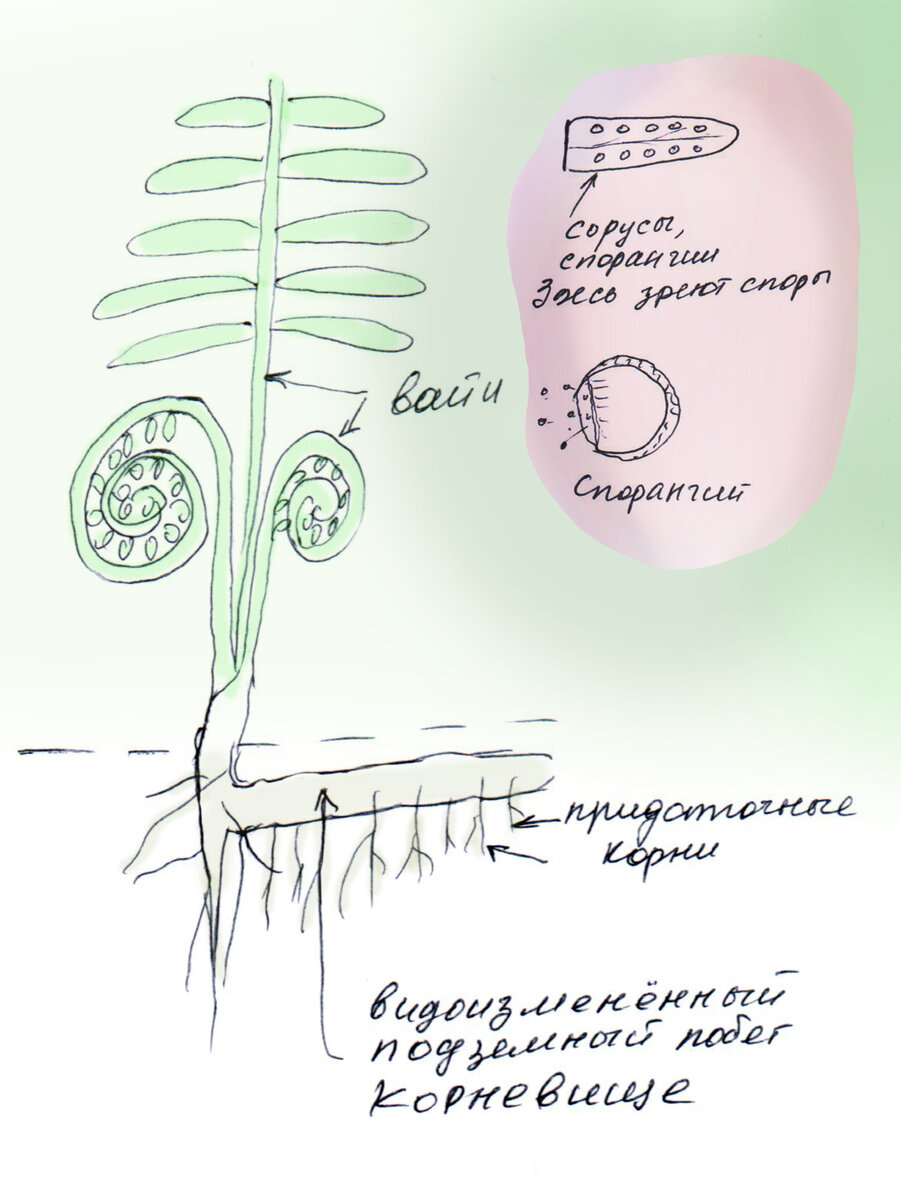 сорусы,
спорангии
Здесь зреют споры
вайи
Спорангий
придаточные
корни
видоизменённый
подземный побег
корневище